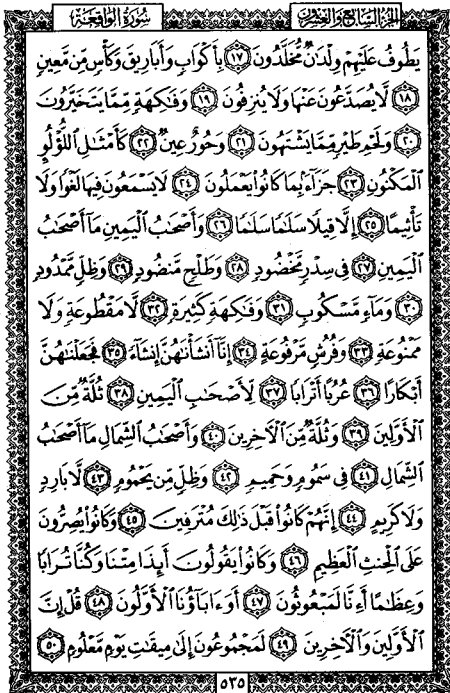 الجزء السابع والعشرون
سورة الواقعة
يَطُوفُ عَلَيْهِمْ وِلْدَٰنٌ مُّخَلَّدُونَ ١٧ بِأَكْوَابٍ وَأَبَارِيقَ وَكَأْسٍ مِّن مَّعِينٍ
١٨ لَّا يُصَدَّعُونَ عَنْهَا وَلَا يُنزِفُونَ ١٩ وَفَٰكِهَةٍ مِّمَّا يَتَخَيَّرُونَ
٢٠ وَلَحْمِ طَيْرٍ مِّمَّا يَشْتَهُونَ ٢١ وَحُورٌ عِينٌ ٢٢ كَأَمْثَٰلِ اللُّؤْلُؤِ
الْمَكْنُونِ ٢٣ جَزَآءًۢ بِمَا كَانُوا۟ يَعْمَلُونَ ٢٤ لَا يَسْمَعُونَ فِيهَا لَغْوًا وَلَا
تَأْثِيمًا ٢٥ إِلَّا قِيلًا سَلَٰمًا سَلَٰمًا ٢٦ وَأَصْحَٰبُ الْيَمِينِ مَآ أَصْحَٰبُ
الْيَمِينِ ٢٧ فِى سِدْرٍ مَّخْضُودٍ ٢٨ وَطَلْحٍ مَّنضُودٍ ٢٩ وَظِلٍّ مَّمْدُودٍ
٣٠ وَمَآءٍ مَّسْكُوبٍ ٣١ وَفَٰكِهَةٍ كَثِيرَةٍ ٣٢ لَّا مَقْطُوعَةٍ وَلَا
مَمْنُوعَةٍ ٣٣ وَفُرُشٍ مَّرْفُوعَةٍ ٣٤ إِنَّآ أَنشَأْنَٰهُنَّ إِنشَآءً ٣٥ فَجَعَلْنَٰهُنَّ
أَبْكَارًا ٣٦ عُرُبًا أَتْرَابًا ٣٧ لِّأَصْحَٰبِ الْيَمِينِ ٣٨ ثُلَّةٌ مِّنَ
الْأَوَّلِينَ ٣٩ وَثُلَّةٌ مِّنَ الْءَاخِرِينَ ٤٠ وَأَصْحَٰبُ الشِّمَالِ مَآ أَصْحَٰبُ
الشِّمَالِ ٤١ فِى سَمُومٍ وَحَمِيمٍ ٤٢ وَظِلٍّ مِّن يَحْمُومٍ ٤٣ لَّا بَارِدٍ
وَلَا كَرِيمٍ ٤٤ إِنَّهُمْ كَانُوا۟ قَبْلَ ذَٰلِكَ مُتْرَفِينَ ٤٥ وَكَانُوا۟ يُصِرُّونَ
عَلَى الْحِنثِ الْعَظِيمِ ٤٦ وَكَانُوا۟ يَقُولُونَ أَئِذَا مِتْنَا وَكُنَّا تُرَابًا
وَعِظَٰمًا أَءِنَّا لَمَبْعُوثُونَ ٤٧ أَوَءَابَآؤُنَا الْأَوَّلُونَ ٤٨ قُلْ إِنَّ
الْأَوَّلِينَ وَالْءَاخِرِينَ ٤٩ لَمَجْمُوعُونَ إِلَىٰ مِيقَٰتِ يَوْمٍ مَّعْلُومٍ ٥٠
٥٣٥